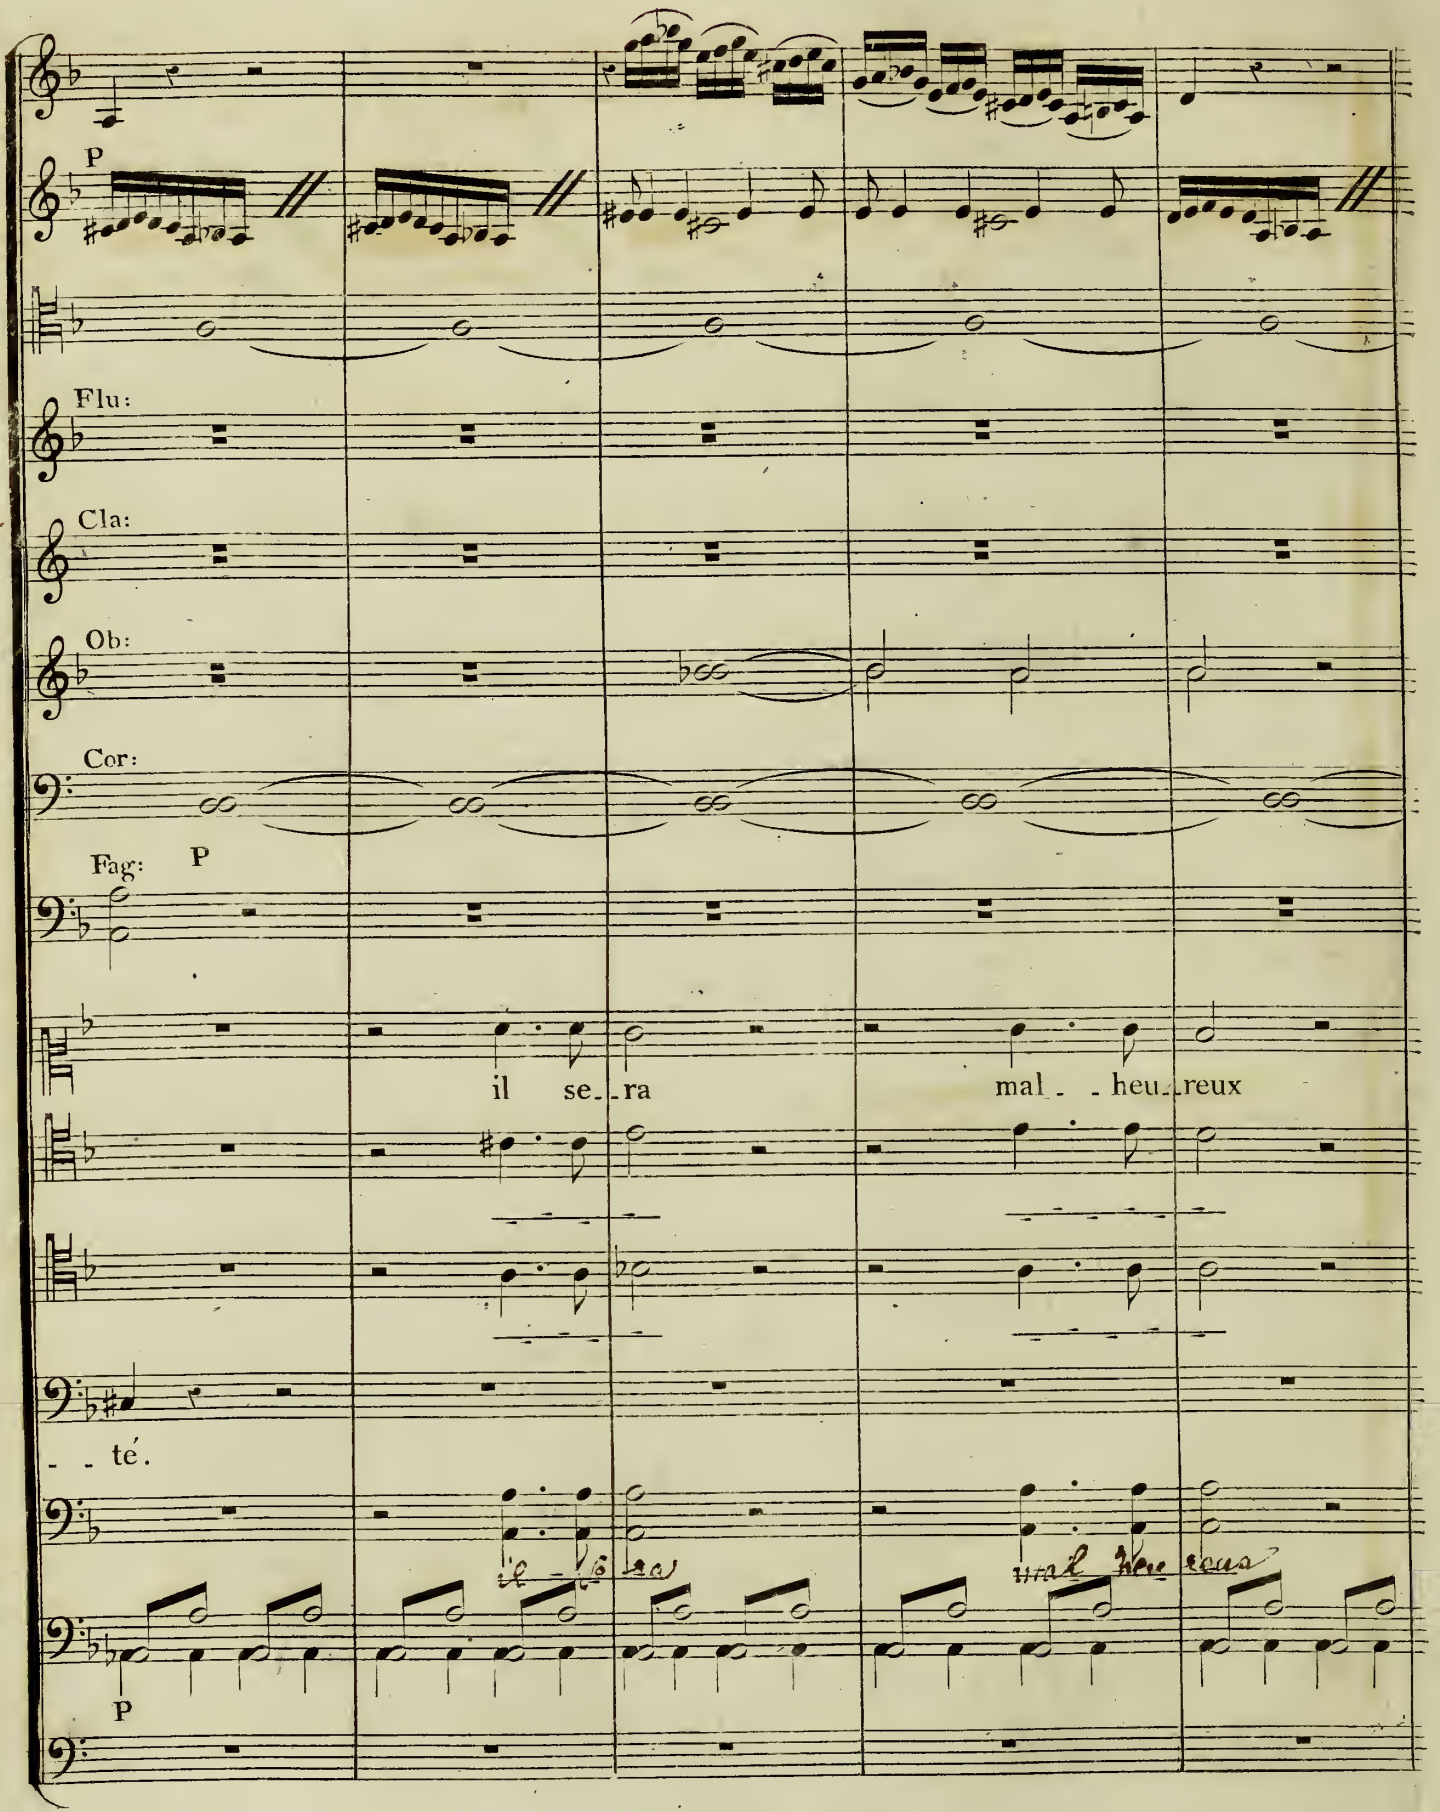 P
Flu:
Cla:
Ob:
Cor:
Fag: P
il se__ra mal_ _heu__reux
_ _ té.
il se ra mal heu reux
P